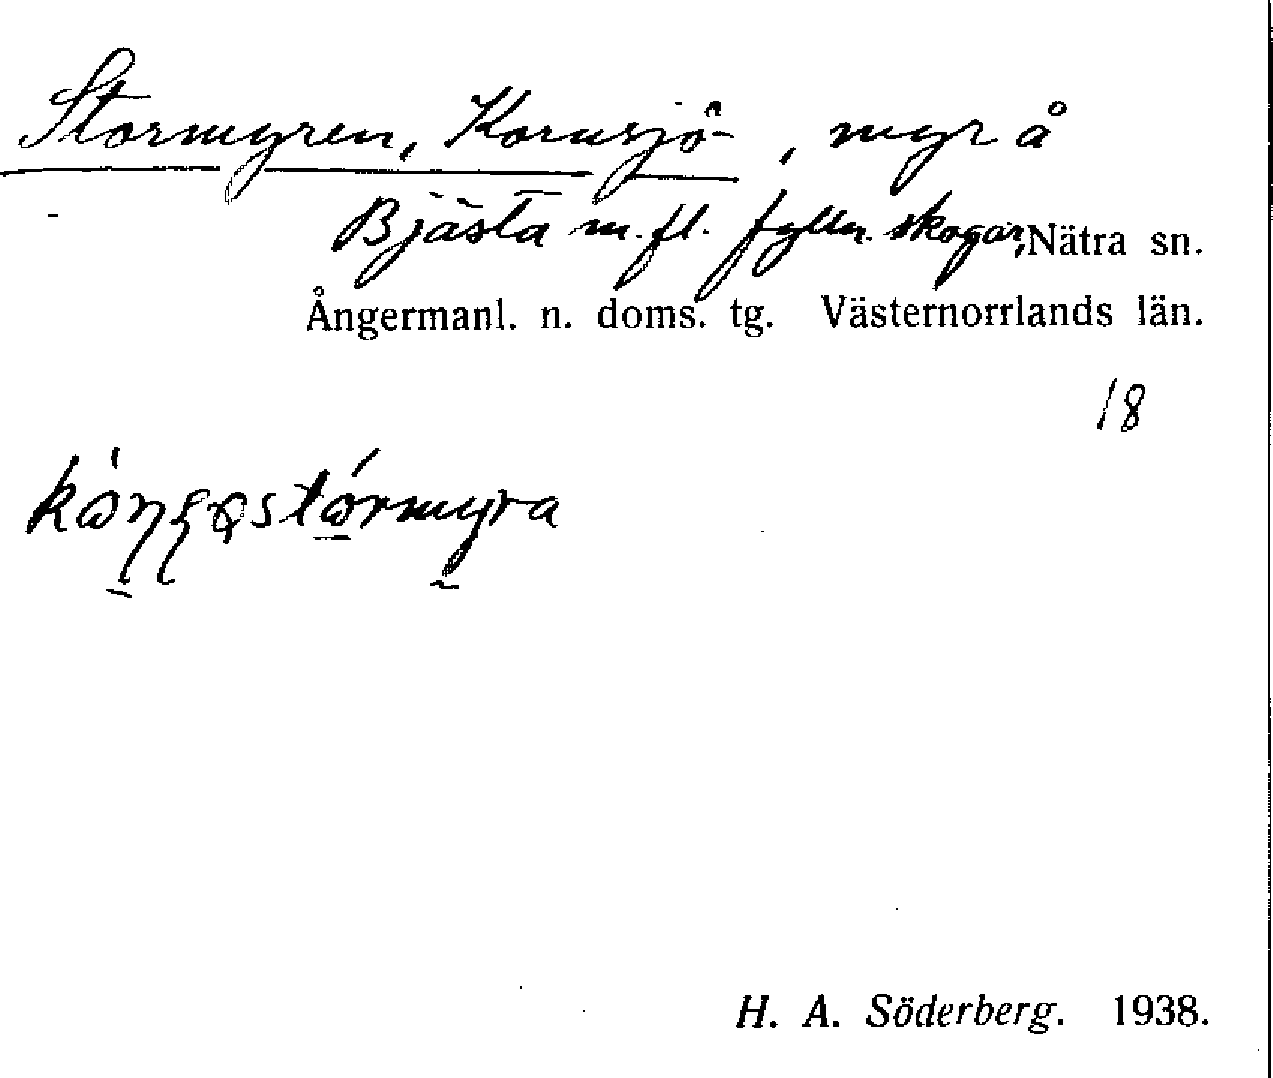 Stormyren, Kornsjö-, myr å
Bjästa m. fl. fylln. skogar, Nätra sn.
Ångermanl. n. doms. tg. Västernorrlands län.
18
H. A. Söderberg. 1938.